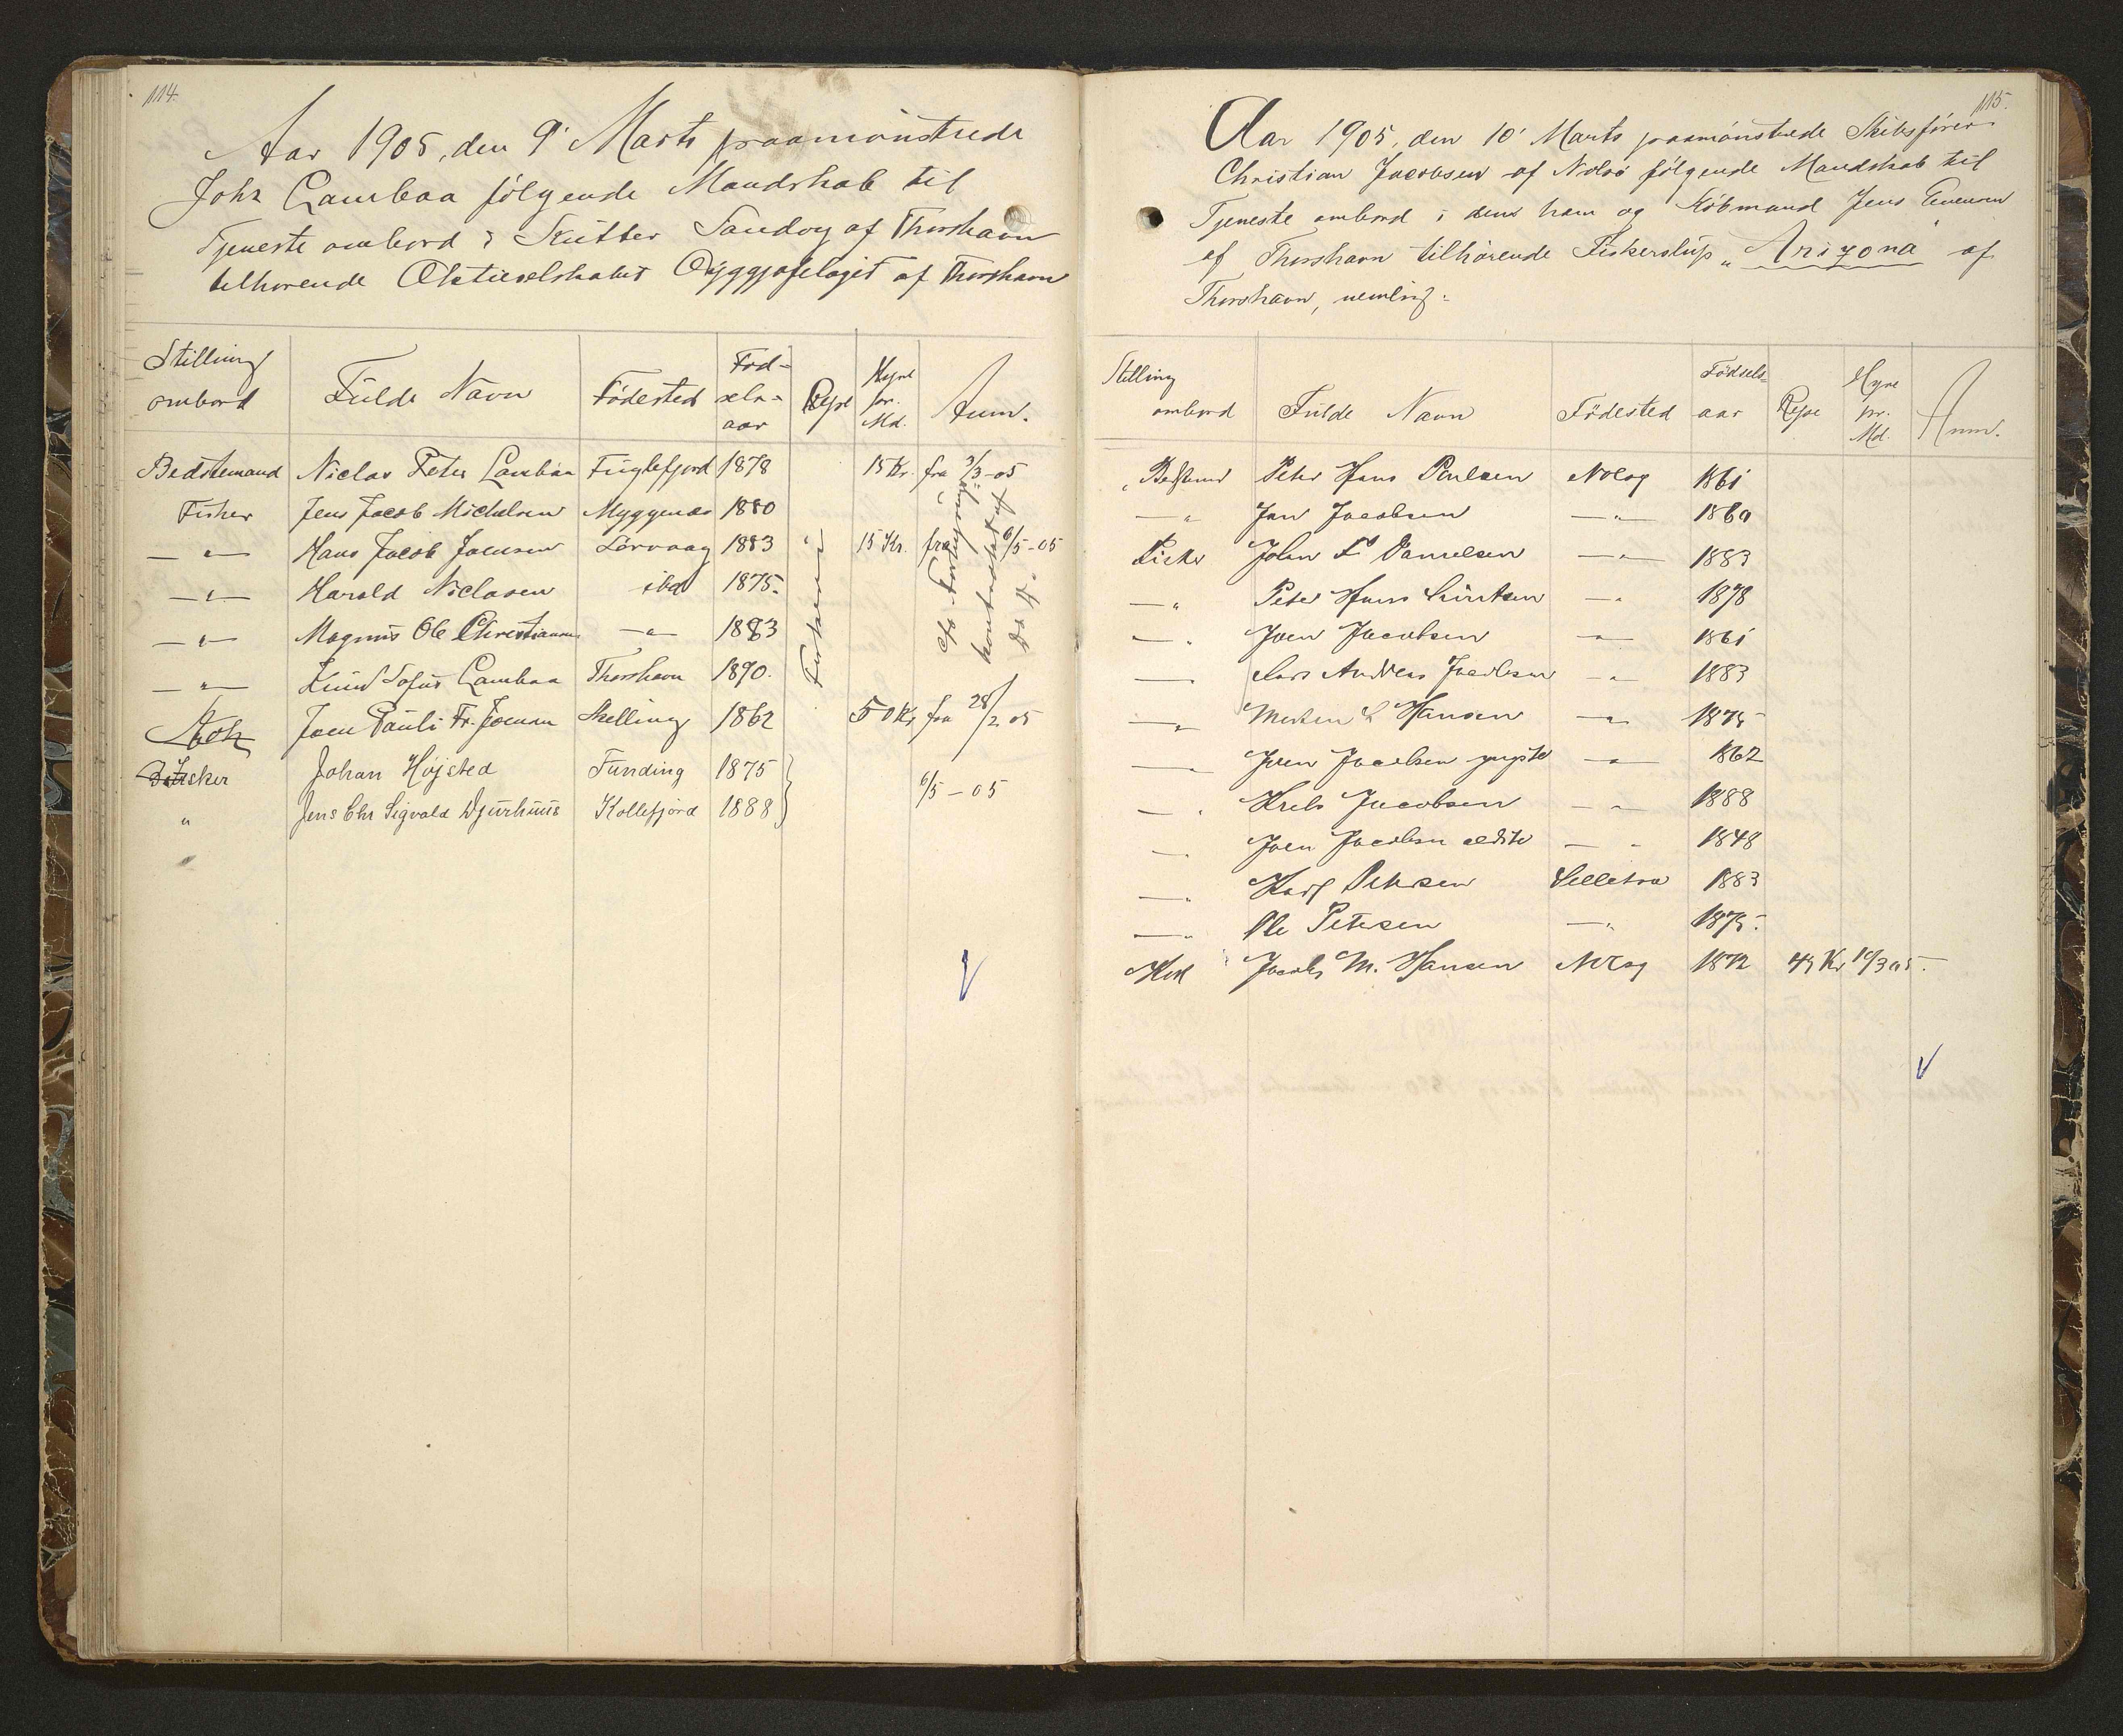 114.
Aar 1905, den 9' Marts paamønstrede
Johs Lambaa følgende Mandskab til
Tjeneste ombord i Kutter Sandoy af Thorshavn
tilhørende Aktieselskabet Byggjafelagit af Thorshavn
Stilling ombord Fulde Navn Fødested Fødselsaar Rejse Hyre pr. Md. Anm.
Bedstemand Niclas Peter Lambaa Fuglefjord 1878 15 Kr. fra 3/3-05
Fisker Jens Jacob Michelsen Myggenæs 1880
— " — Hans Jacob Joensen Sørvaag 1883 " 15 Kr. fra 6/5-05
— " — Harald Niclasen ibd 1875.
— " — Magnus Ole Christiansen — " — 1883
— " — Knud Sofus Lambaa Thorshavn 1890.
Kok Joen Pauli Fr. Joensen Skelling 1862 50 Kr fra 28/2 05
Fisker Johan Højsted Funding 1875
" Jens Chr Sigvald Djurhuus Kollefjord 1888 6/5 - 05
115.
Aar 1905, den 10' Marts paamønstrede Skibsfører
Christian Jacobsen af Nolsø følgende Mandskab til
Tjeneste ombord i dens ham og Købmand Jens Evensen
af Thorshavn tilhørende Fiskerslup „Arizona" af
Thorshavn, nemlig:
Stilling ombord Fulde Navn Fødested Fødselsaar Rejse Hyre pr. Md. Anm.
Bedstmd Peter Hans Poulsen Nolsø 1861
— " Jan Jacobsen — " — 1860
Fisker John F Danielsen — " — 1883
— " Peter Hans — " 1878
— " Joen Jacobsen — " — 1861
— Lars Andreas Jacobsen — " 1883
— " Morten L Hansen — " 1875
— " Joen Jacobsen yngste — " — 1862
— " Jacobsen — " — 1888
— " Joen Jacobsen ældste — " 1848
— " Petersen Selletræ 1883
— " Ole Petersen — " 1875.
Kok Jacob M. Hansen Nolsø 1872 45 Kr 10/3 05.